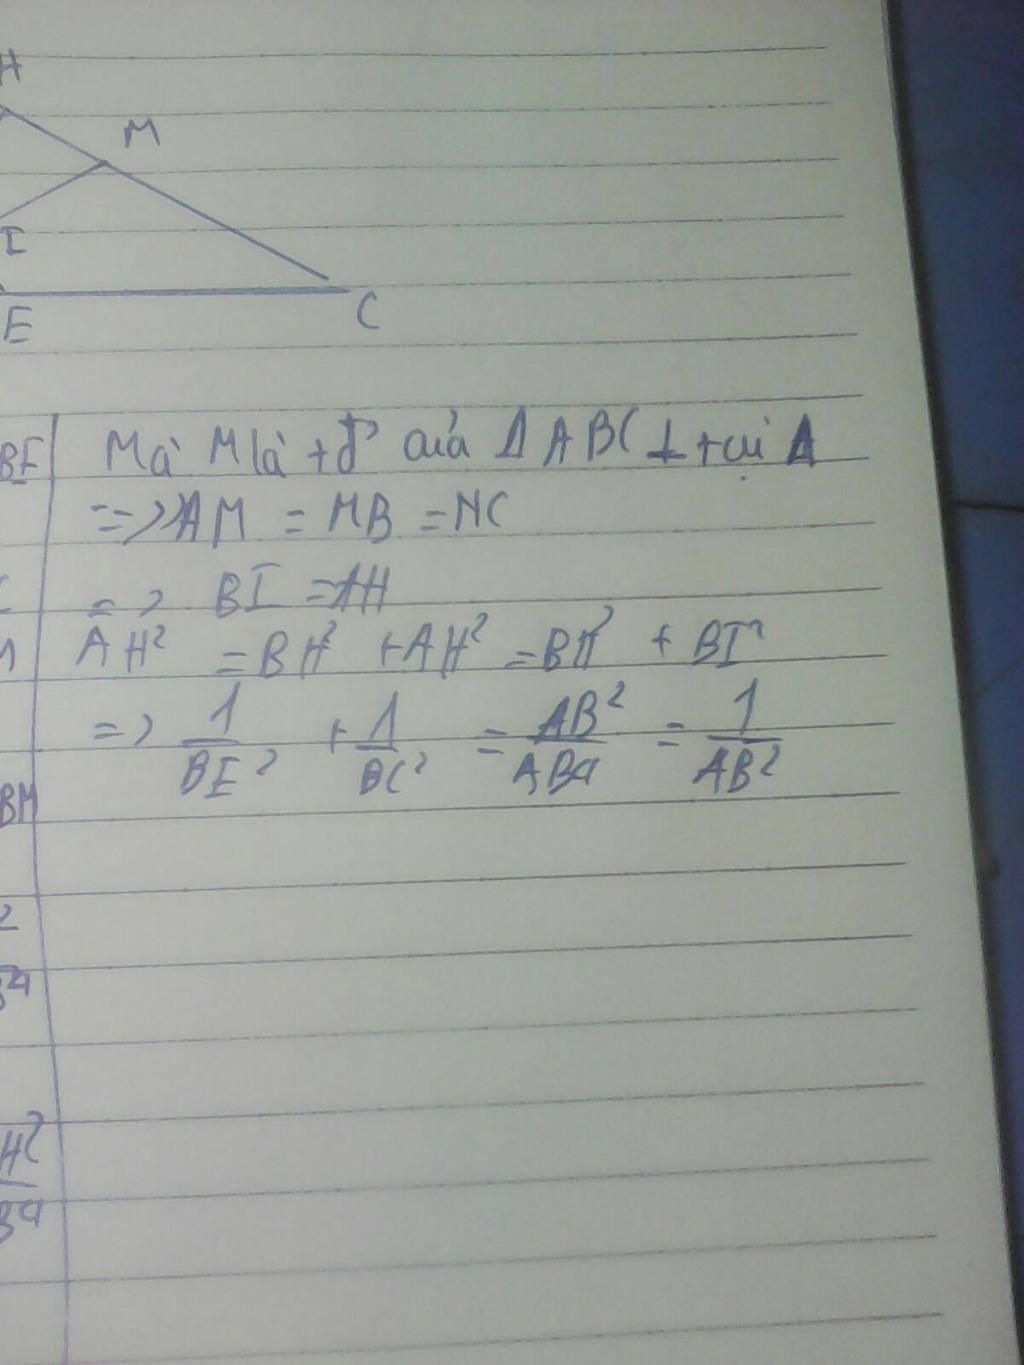 H
M
I
E
C
BE
Mà M là tđ của Δ ABC ⊥ tại A
=> AM = MB = MC
=> BI = AH
AH² = BH² + AH² = BH² + BI²
=> 1/BE² + 1/BC² = AB²/AB4 = 1/AB²
BM
2
B4
H²
B4